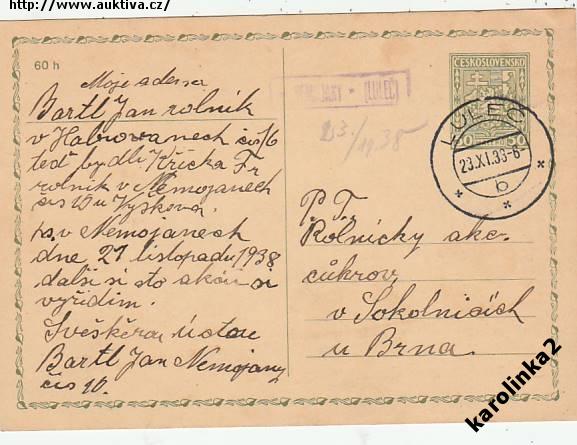 http://www.auktiva.cz/
60 h
ČESKOSLOVENSKO
50 50
(LULEČ)
LULEČ
23.XI.38-6-
b
23./11.38
Moje adresa
Bartl Jan rolník
v Habrovanech čís 76
teď bydlí Křička Fr
rolník v Nemojanech
čís 10 u Vyškova.
v Nemojanech
dne 21 listopadu 1938
další si
vyřídím.
úctou
Bartl Jan Nemojany
čís 10.
P.T.
Rolnický akc.
cukrov.
v Sokolnicích
u Brna.
karolinka2